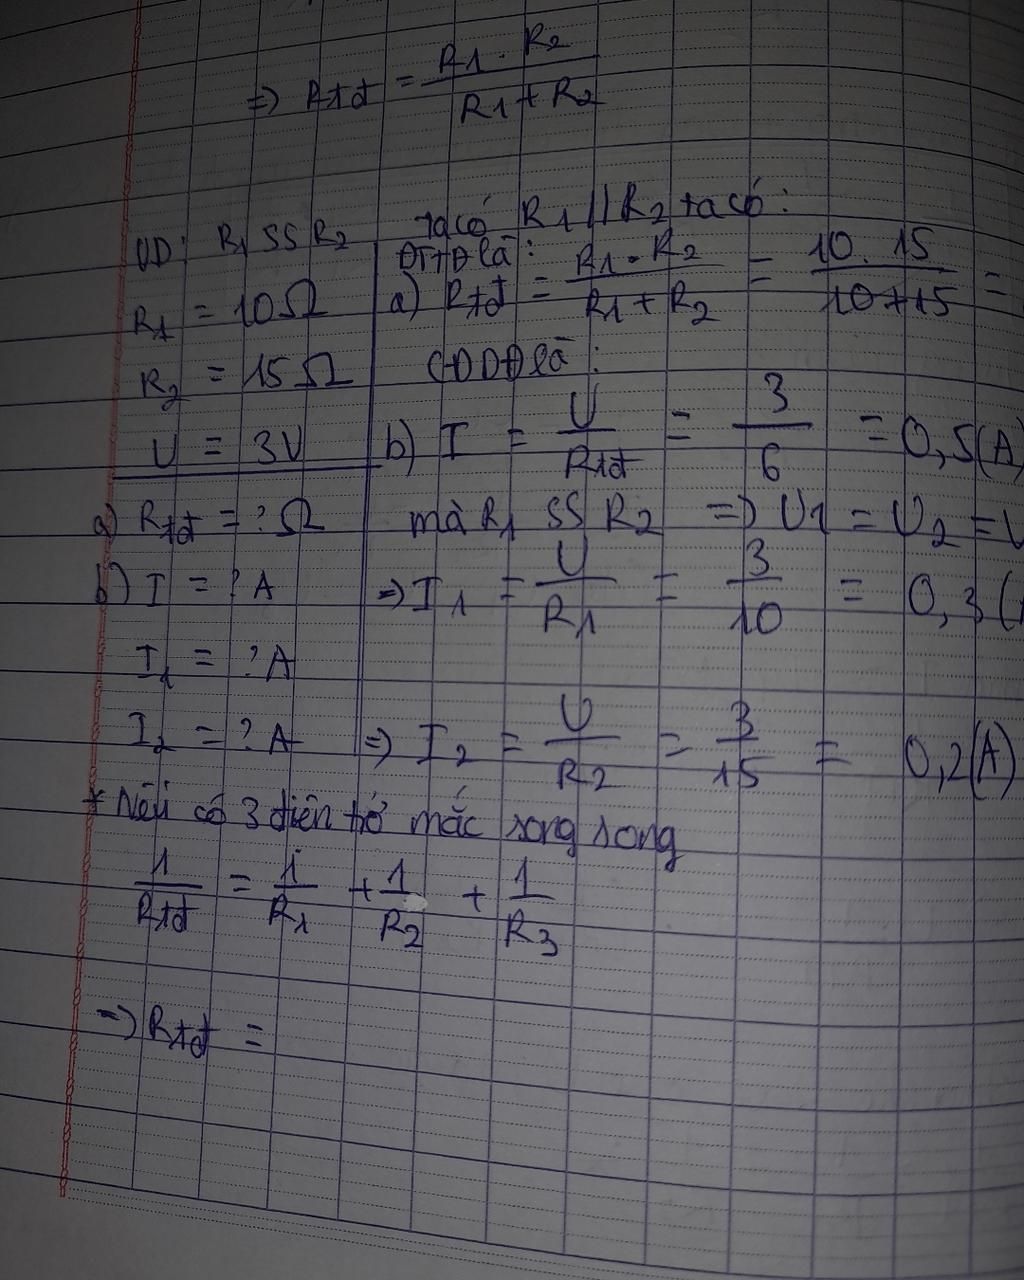 =) Rtđ = R1 . R2 / R1 + R2
VD: R1 SS R2
R1 = 10Ω
R2 = 15Ω
U = 3V
a) Rtđ = ? Ω
b) I = ? A
I1 = ? A
I2 = ? A
ta có R1 // R2 ta có:
ĐTTĐ là:
a) Rtđ = R1 . R2 / R1 + R2 = 10. 15 / 10 + 15 =
CĐDĐ là:
b) I = U / Rtđ = 3 / 6 = 0,5(A)
mà R1 SS R2 =) U1 = U2 =
=) I1 = U / R1 = 3 / 10 = 0,3 (
=) I2 = U / R2 = 3 / 15 = 0,2(A)
* Nếu có 3 điện trở mắc song song
1 / Rtđ = 1 / R1 + 1 / R2 + 1 / R3
=) Rtđ =